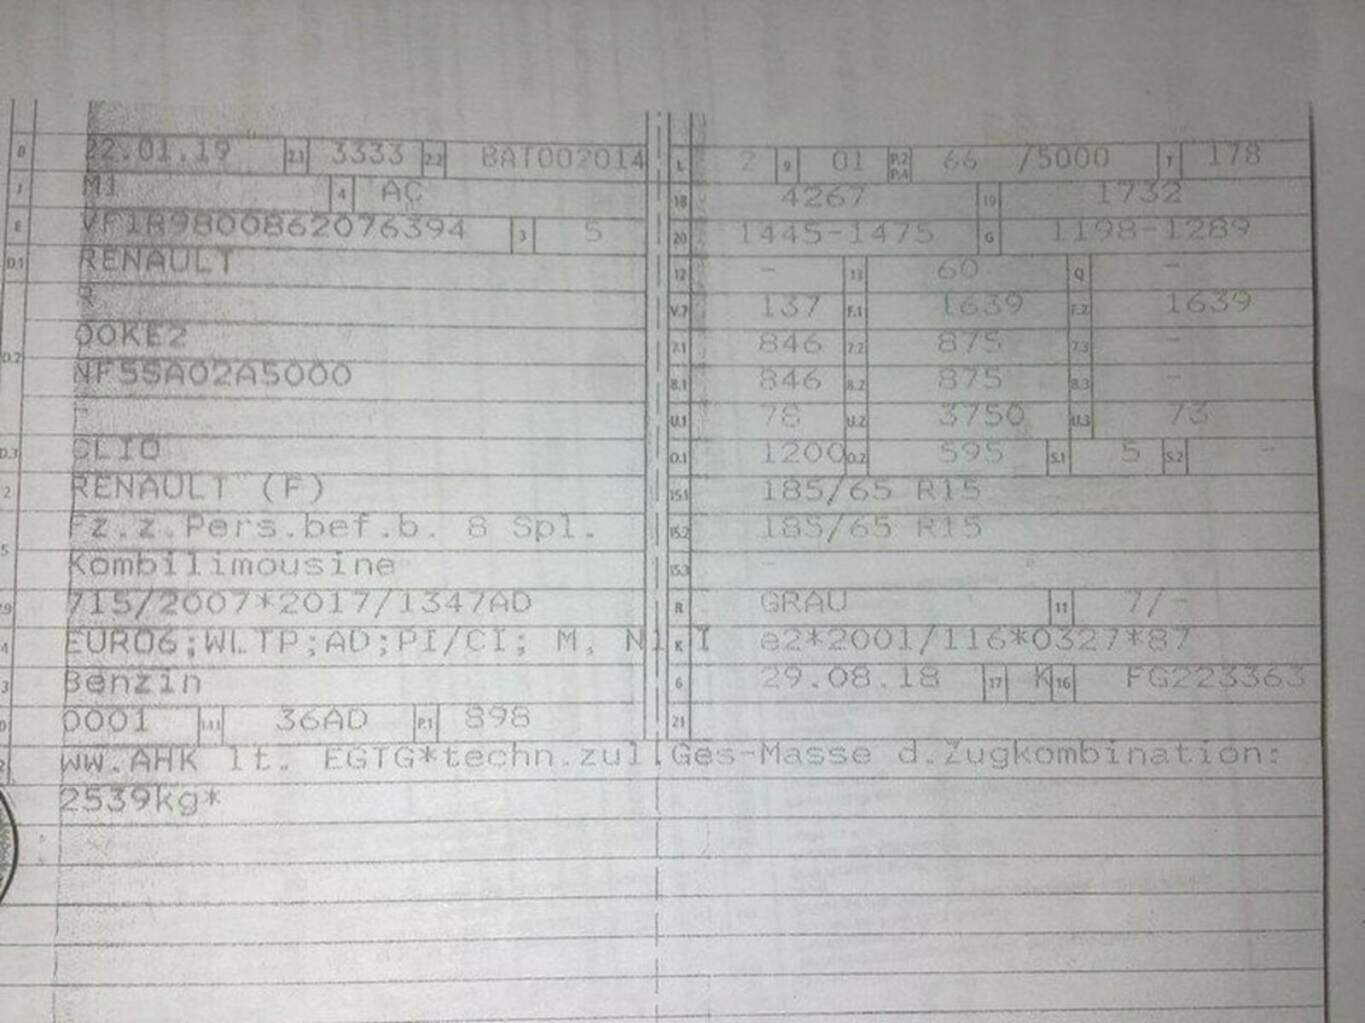 B 22.01.19 2.1 3333 2.2 BAT002014 L 2 9 01 P.2 P.4 66 /5000 T 178
J M1 4 AC 18 4267 19 1732
E VF1R9800862076394 3 5 20 1445-1475 G 1198-1289
D.1 RENAULT 12 - 13 60 Q -
R V.7 137 F.1 1639 F.2 1639
D.2 00KE2 7.1 846 7.2 875 7.3 -
NF5SA02A5000 8.1 846 8.2 875 8.3 -
- U.1 78 U.2 3750 U.3 73
D.3 CLIO O.1 1200 O.2 595 S.1 5 S.2 -
2 RENAULT (F) 15.1 185/65 R15
5 Fz.z.Pers.bef.b. 8 Spl. 15.2 185/65 R15
Kombilimousine 15.3 -
V.9 715/2007*2017/1347AD R GRAU 11 7/-
4 EURO6;WLTP;AD;PI/CI; M, N1 I K e2*2001/116*0327*87
3 Benzin 6 29.08.18 17 K 16 FG223363
0001 14.1 36AD P.1 898 21
ww.AHK lt. EGTG*techn.zul.Ges-Masse d.Zugkombination:
2539kg*